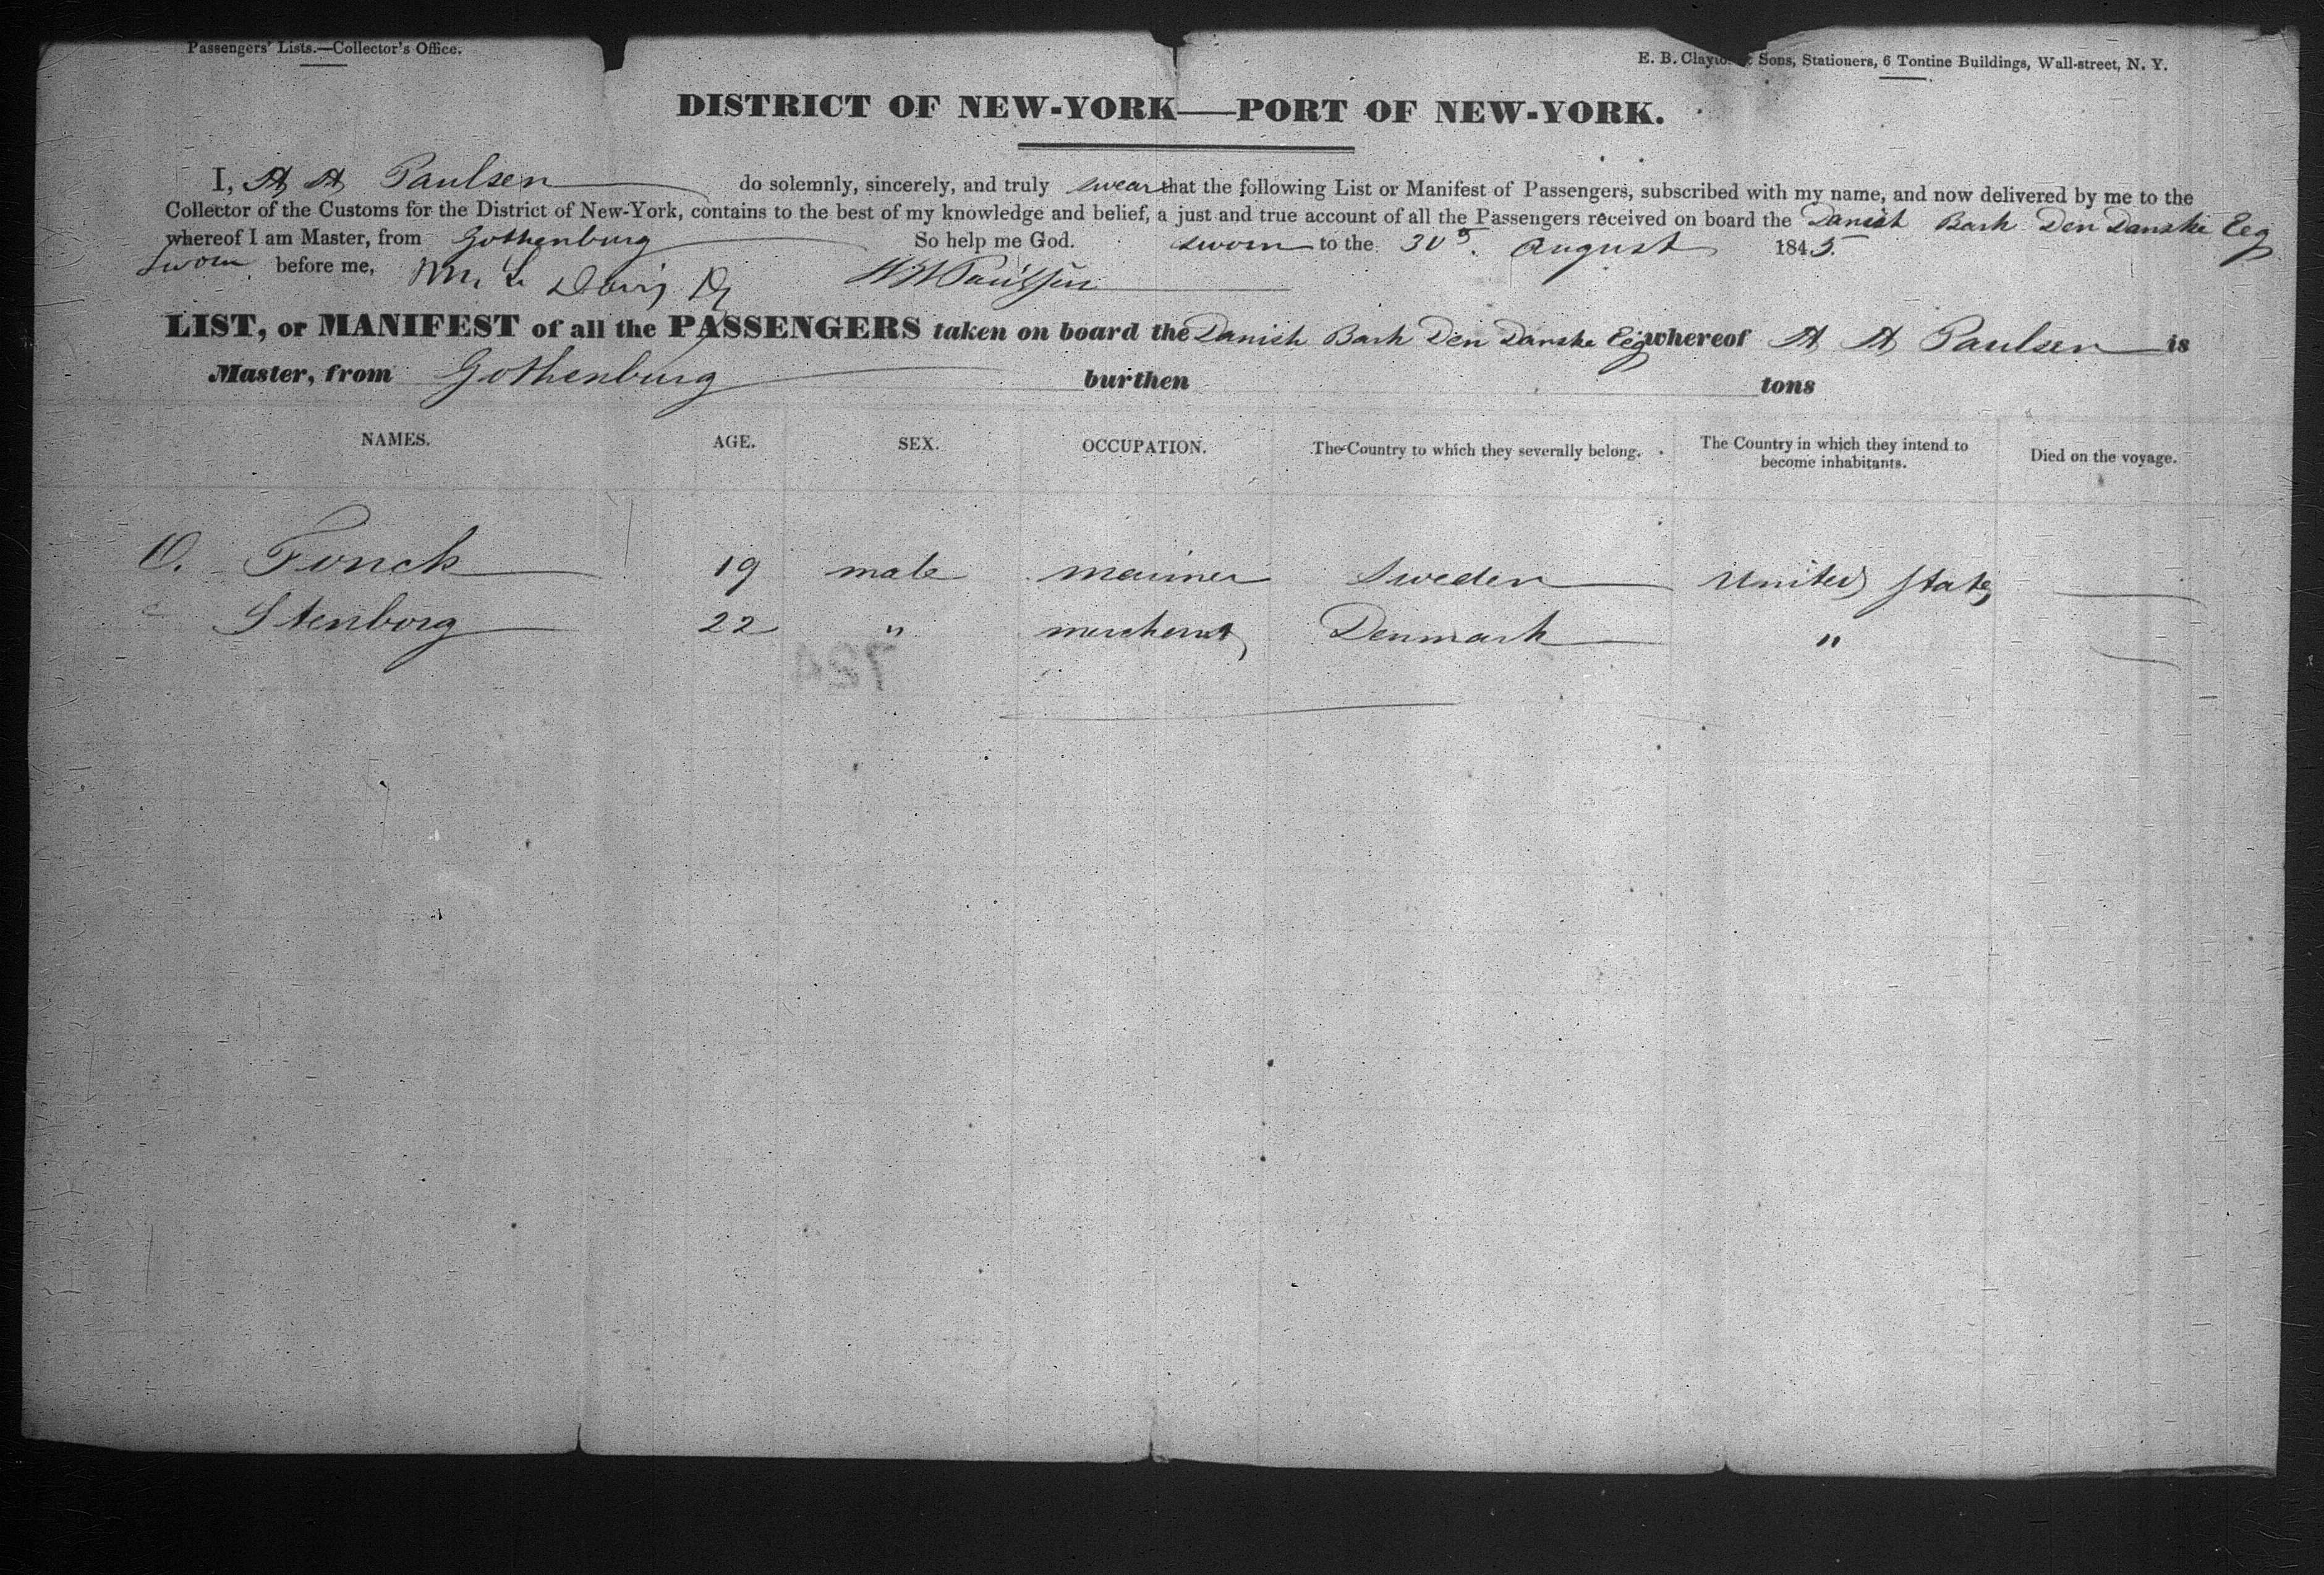 Passengers' Lists.—Collector's Office.
E. B. Clayton & Sons, Stationers, 6 Tontine Buildings, Wall-street, N. Y.
DISTRICT OF NEW-YORK—PORT OF NEW-YORK.
I, A A Paulsen do solemnly, sincerely, and truly swear that the following List or Manifest of Passengers, subscribed with my name, and now delivered by me to the
Collector of the Customs for the District of New-York, contains to the best of my knowledge and belief, a just and true account of all the Passengers received on board the Danish Bark Den Danske Eeg
whereof I am Master, from Gothenburg So help me God. sworn to the 30 August 1845.
Sworn before me, Paulsen
LIST, or MANIFEST of all the PASSENGERS taken on board the Danish Bark Den Danske Eeg whereof A A Paulsen is
Master, from Gothenburg burthen tons
NAMES. AGE. SEX. OCCUPATION. The Country to which they severally belong. The Country in which they intend to become inhabitants. Died on the voyage.
O. Fonck 19 male mariner Sweden United States
Stenborg 22 " merchant Denmark "